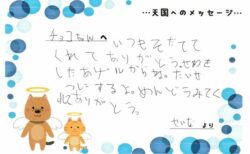 …天国へのメッセージ…
チョコちゃん へ
いつもそだてて
くれてありがとう。せわを
したあげルからね。たいせ
つにするよ。めんどうみてく
れてありがとう。
せいな より